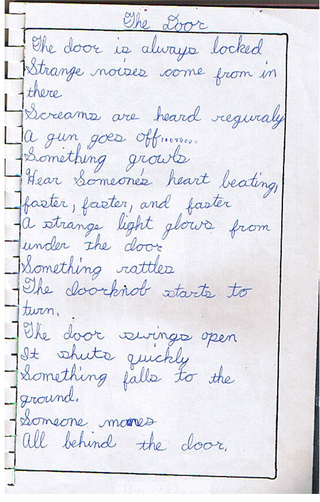 The Door
The door is always locked
Strange noises come from in
there
Screams are heard reguraly
A gun goes off........
Something growls
Hear Someone's heart beating,
faster, faster, and faster
A strange light glows from
under the door
Something rattles
The doorknob starts to
turn.
The door swings open
It shuts quickly
Something falls to the
ground.
Someone moves
All behind the door.